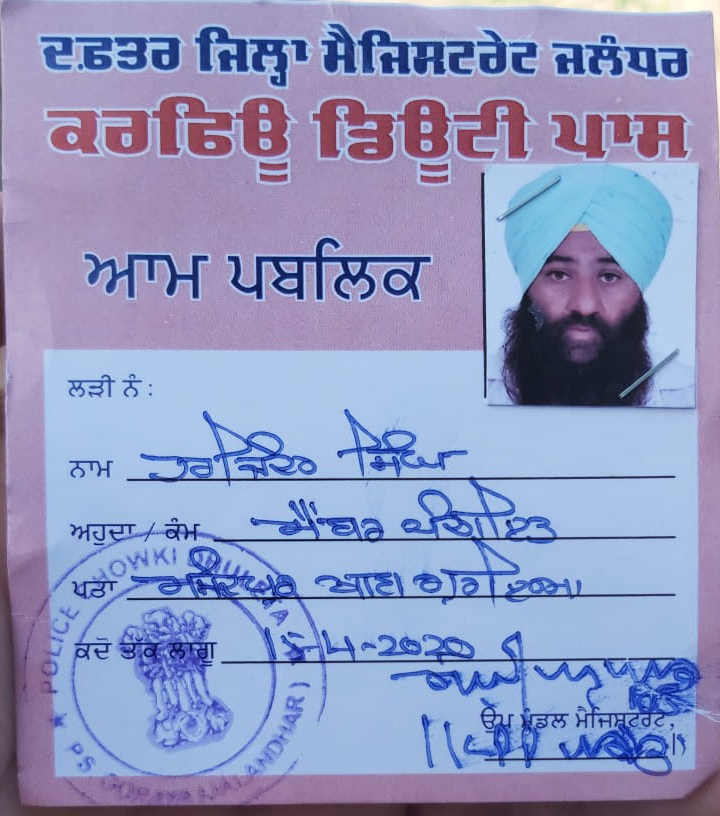 ਦਫ਼ਤਰ ਜਿਲ੍ਹਾ ਮੈਜਿਸਟਰੇਟ ਜਲੰਧਰ
ਕਰਫਿਊ ਡਿਊਟੀ ਪਾਸ
ਆਮ ਪਬਲਿਕ
ਲੜੀ ਨੰ :
ਨਾਮ ਹਰਜਿੰਦਰ ਸਿੰਘ
ਅਹੁਦਾ / ਕੰਮ ਮੈਂਬਰ ਪੰਚਾਇਤ
ਪਤਾ
ਕਦੋਂ ਤੱਕ ਲਾਗੂ 15-4-2020
ਉਪ ਮੰਡਲ ਮੈਜਿਸਟਰੇਟ,
POLICE CHOWKI
PS GORAYA (JALANDHAR)